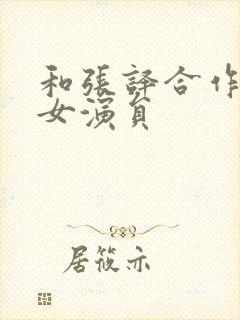 和張譯合作
女演員
居筱亦